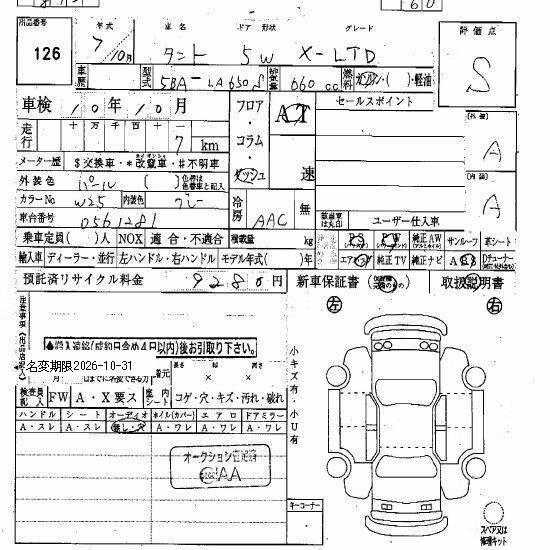 出品番号 年式 車名 ドア 形状 グレード 評価点
126 7/10月 タント 5W X-LTD S
車歴 型式 5BA-LA650S 排気量 660cc 燃料 ガソリン・( )・軽油
車検 10年10月 フロア・コラム・ダッシュ AT セールスポイント
走行 十万千百十一 7 km 速 (外装) A
メーター歴 $交換車・*改ざん車・#不明車
外装色 パール ( ) 色替は色替車と記入 (内装) A
カラーNo W25 内装色 グレー 冷房 AAC 無
車台番号 0561281 ユーザー仕入車
乗車定員( )人 NOX 適合・不適合 積載量 kg PS PW 純正AW サンルーフ 革シート
輸入車 ディーラー・並行 左ハンドル・右ハンドル モデル年式( )年 純正TV 純正ナビ
預託済リサイクル料金 9280円 新車保証書 取扱説明書
左 右
注意事項
▲搬入連絡(成約日含め4日以内)後お引取り下さい。
名変期限2026-10-31
長さ 幅 高さ
× ×
検査員記入 FW A・X要ス 室内シート コゲ・穴・キズ・汚れ・破れ
ハンドル シート オーディオ ホイル(カバー) エアロ ドアミラー
A・スレ A・スレ 無し・穴 A・ワレ A・ワレ A・ワレ
小キズ有・小U有
オークション
AA
キーコーナー
スペア又は修理キット